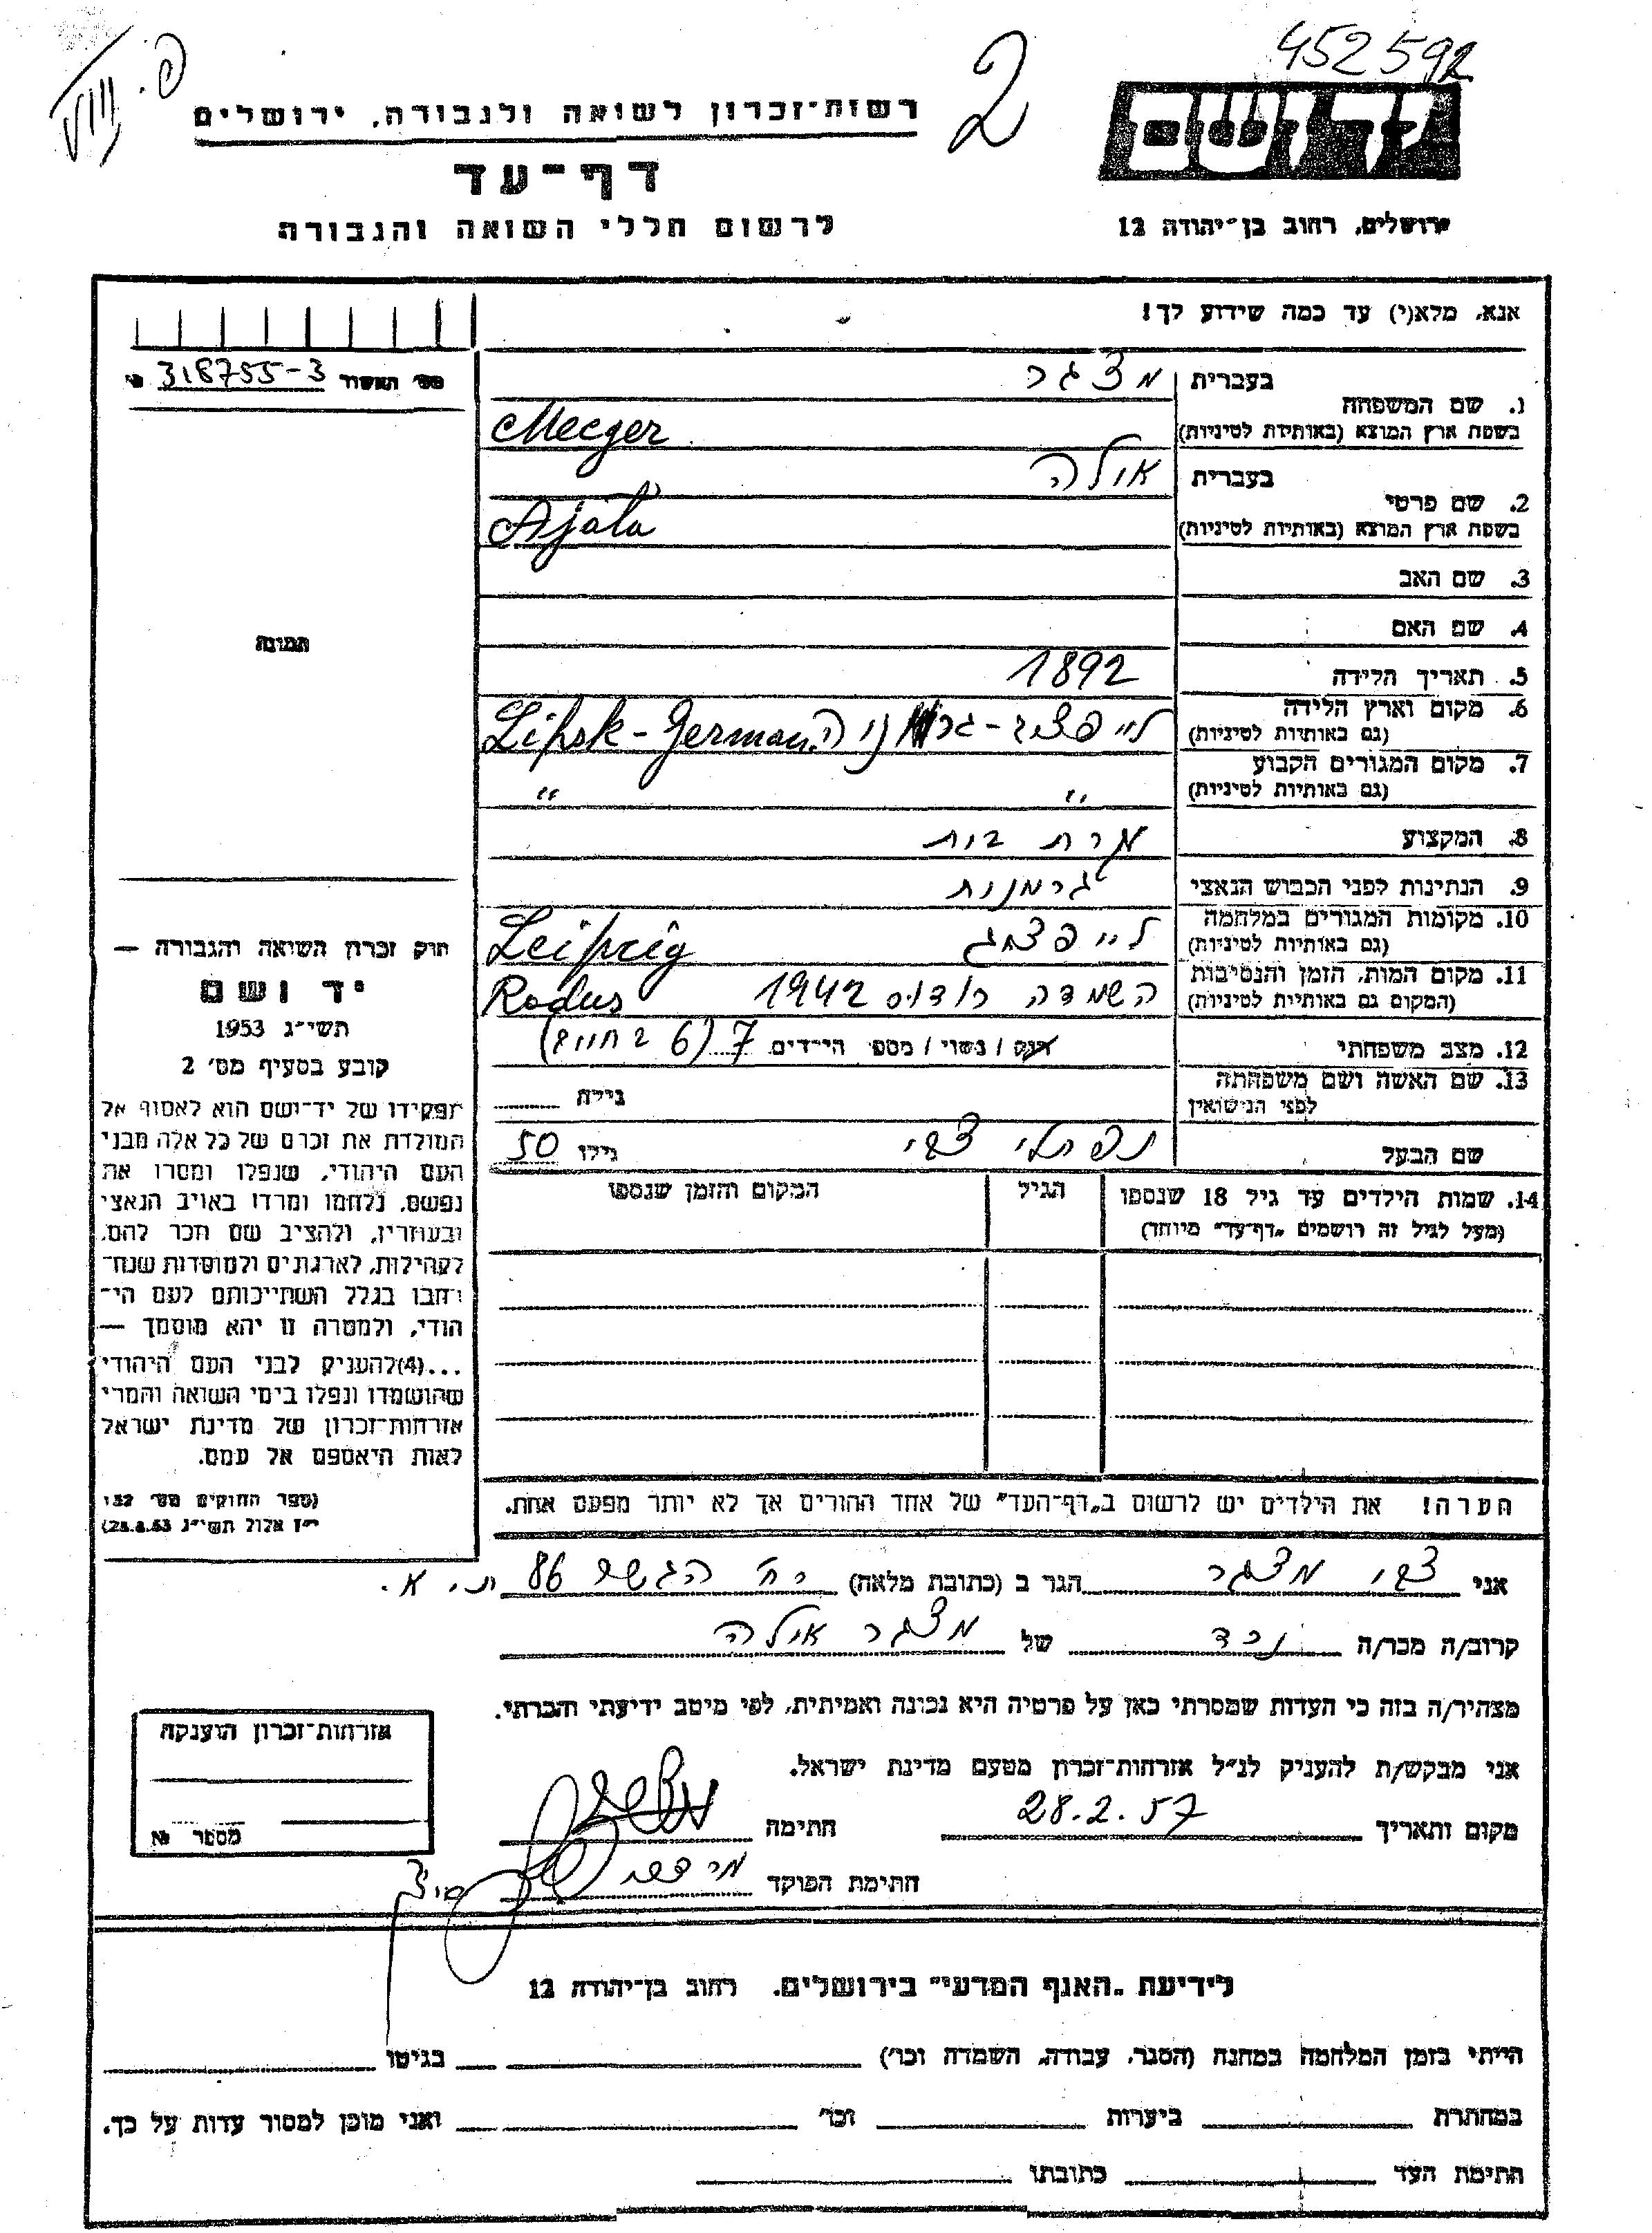 452592
פ. VIII
2
יד ושם
רשות־זכרון לשואה ולגבורה, ירושלים
דף־עד
לרשום חללי השואה והגבורה
ירושלים, רחוב בן־יהודה 12
אנא, מלא(י) עד כמה שידוע לך!
מס׳ האשור 318755-3
תמונה
1. שם המשפחה
בעברית מצגר
בשפת ארץ המוצא (באותיות לטיניות) Mecger
2. שם פרטי
בעברית אילה
בשפת ארץ המוצא (באותיות לטיניות) Ajala
3. שם האב
4. שם האם
5. תאריך הלידה 1892
6. מקום וארץ הלידה
(גם באותיות לטיניות) לייפציג - גרמניה Lipsk - German.
7. מקום המגורים הקבוע
(גם באותיות לטיניות) " "
8. המקצוע עקרת בית
9. הנתינות לפני הכבוש הנאצי גרמנית
10. מקומות המגורים במלחמה
(גם באותיות לטיניות) לייפציג Leipzig
11. מקום המות, הזמן והנסיבות
(המקום גם באותיות לטיניות) השמדה רודוס 1942 Rodus
12. מצב משפחתי רווק / נשוי / מספר הילדים 7 (6 בחיים)
13. שם האשה ושם משפחתה
לפני הנישואין גילה
שם הבעל נפתלי צבי גילו 50
14. שמות הילדים עד גיל 18 שנספו הגיל המקום והזמן שנספו
(מעל לגיל זה רושמים „דף־עד" מיוחד)
חוק זכרון השואה והגבורה —
יד ושם
תשי״ג 1953
קובע בסעיף מס׳ 2
תפקידו של יד־ושם הוא לאסוף אל
המולדת את זכרם של כל אלה מבני
העם היהודי, שנפלו ומסרו את
נפשם, נלחמו ומרדו באויב הנאצי
ובעוזריו, ולהציב שם וזכר להם,
לקהילות, לארגונים ולמוסדות שנח־
רבו בגלל השתייכותם לעם הי־
הודי, ולמטרה זו יהא מוסמך —
...(4) להעניק לבני העם היהודי
שהושמדו ונפלו בימי השואה והמרי
אזרחות־זכרון של מדינת ישראל
לאות היאספם אל עמם.
(ספר החוקים מס׳ 132
י״ז אלול תשי״ג 28.8.53)
הערה! את הילדים יש לרשום ב„דף־העד" של אחד ההורים אך לא יותר מפעם אחת.
אני צבי מצגר הגר ב (כתובת מלאה) רח׳ 86 ת.א.
קרוב/ה מכר/ה נכד של מצגר אילה
מצהיר/ה בזה כי העדות שמסרתי כאן על פרטיה היא נכונה ואמיתית, לפי מיטב ידיעתי והכרתי.
אני מבקש/ת להעניק לנ״ל אזרחות־זכרון מטעם מדינת ישראל.
מקום ותאריך 28.2.57 חתימה
חתימת הפוקד
אזרחות־זכרון הוענקה
מספר №
לידיעת „האגף המדעי" בירושלים, רחוב בן־יהודה 12
הייתי בזמן המלחמה במחנה (הסגר, עבודה, השמדה וכו׳) בגיטו
במחתרת ביערות וכו׳ ואני מוכן למסור עדות על כך.
חתימת העד כתובתו